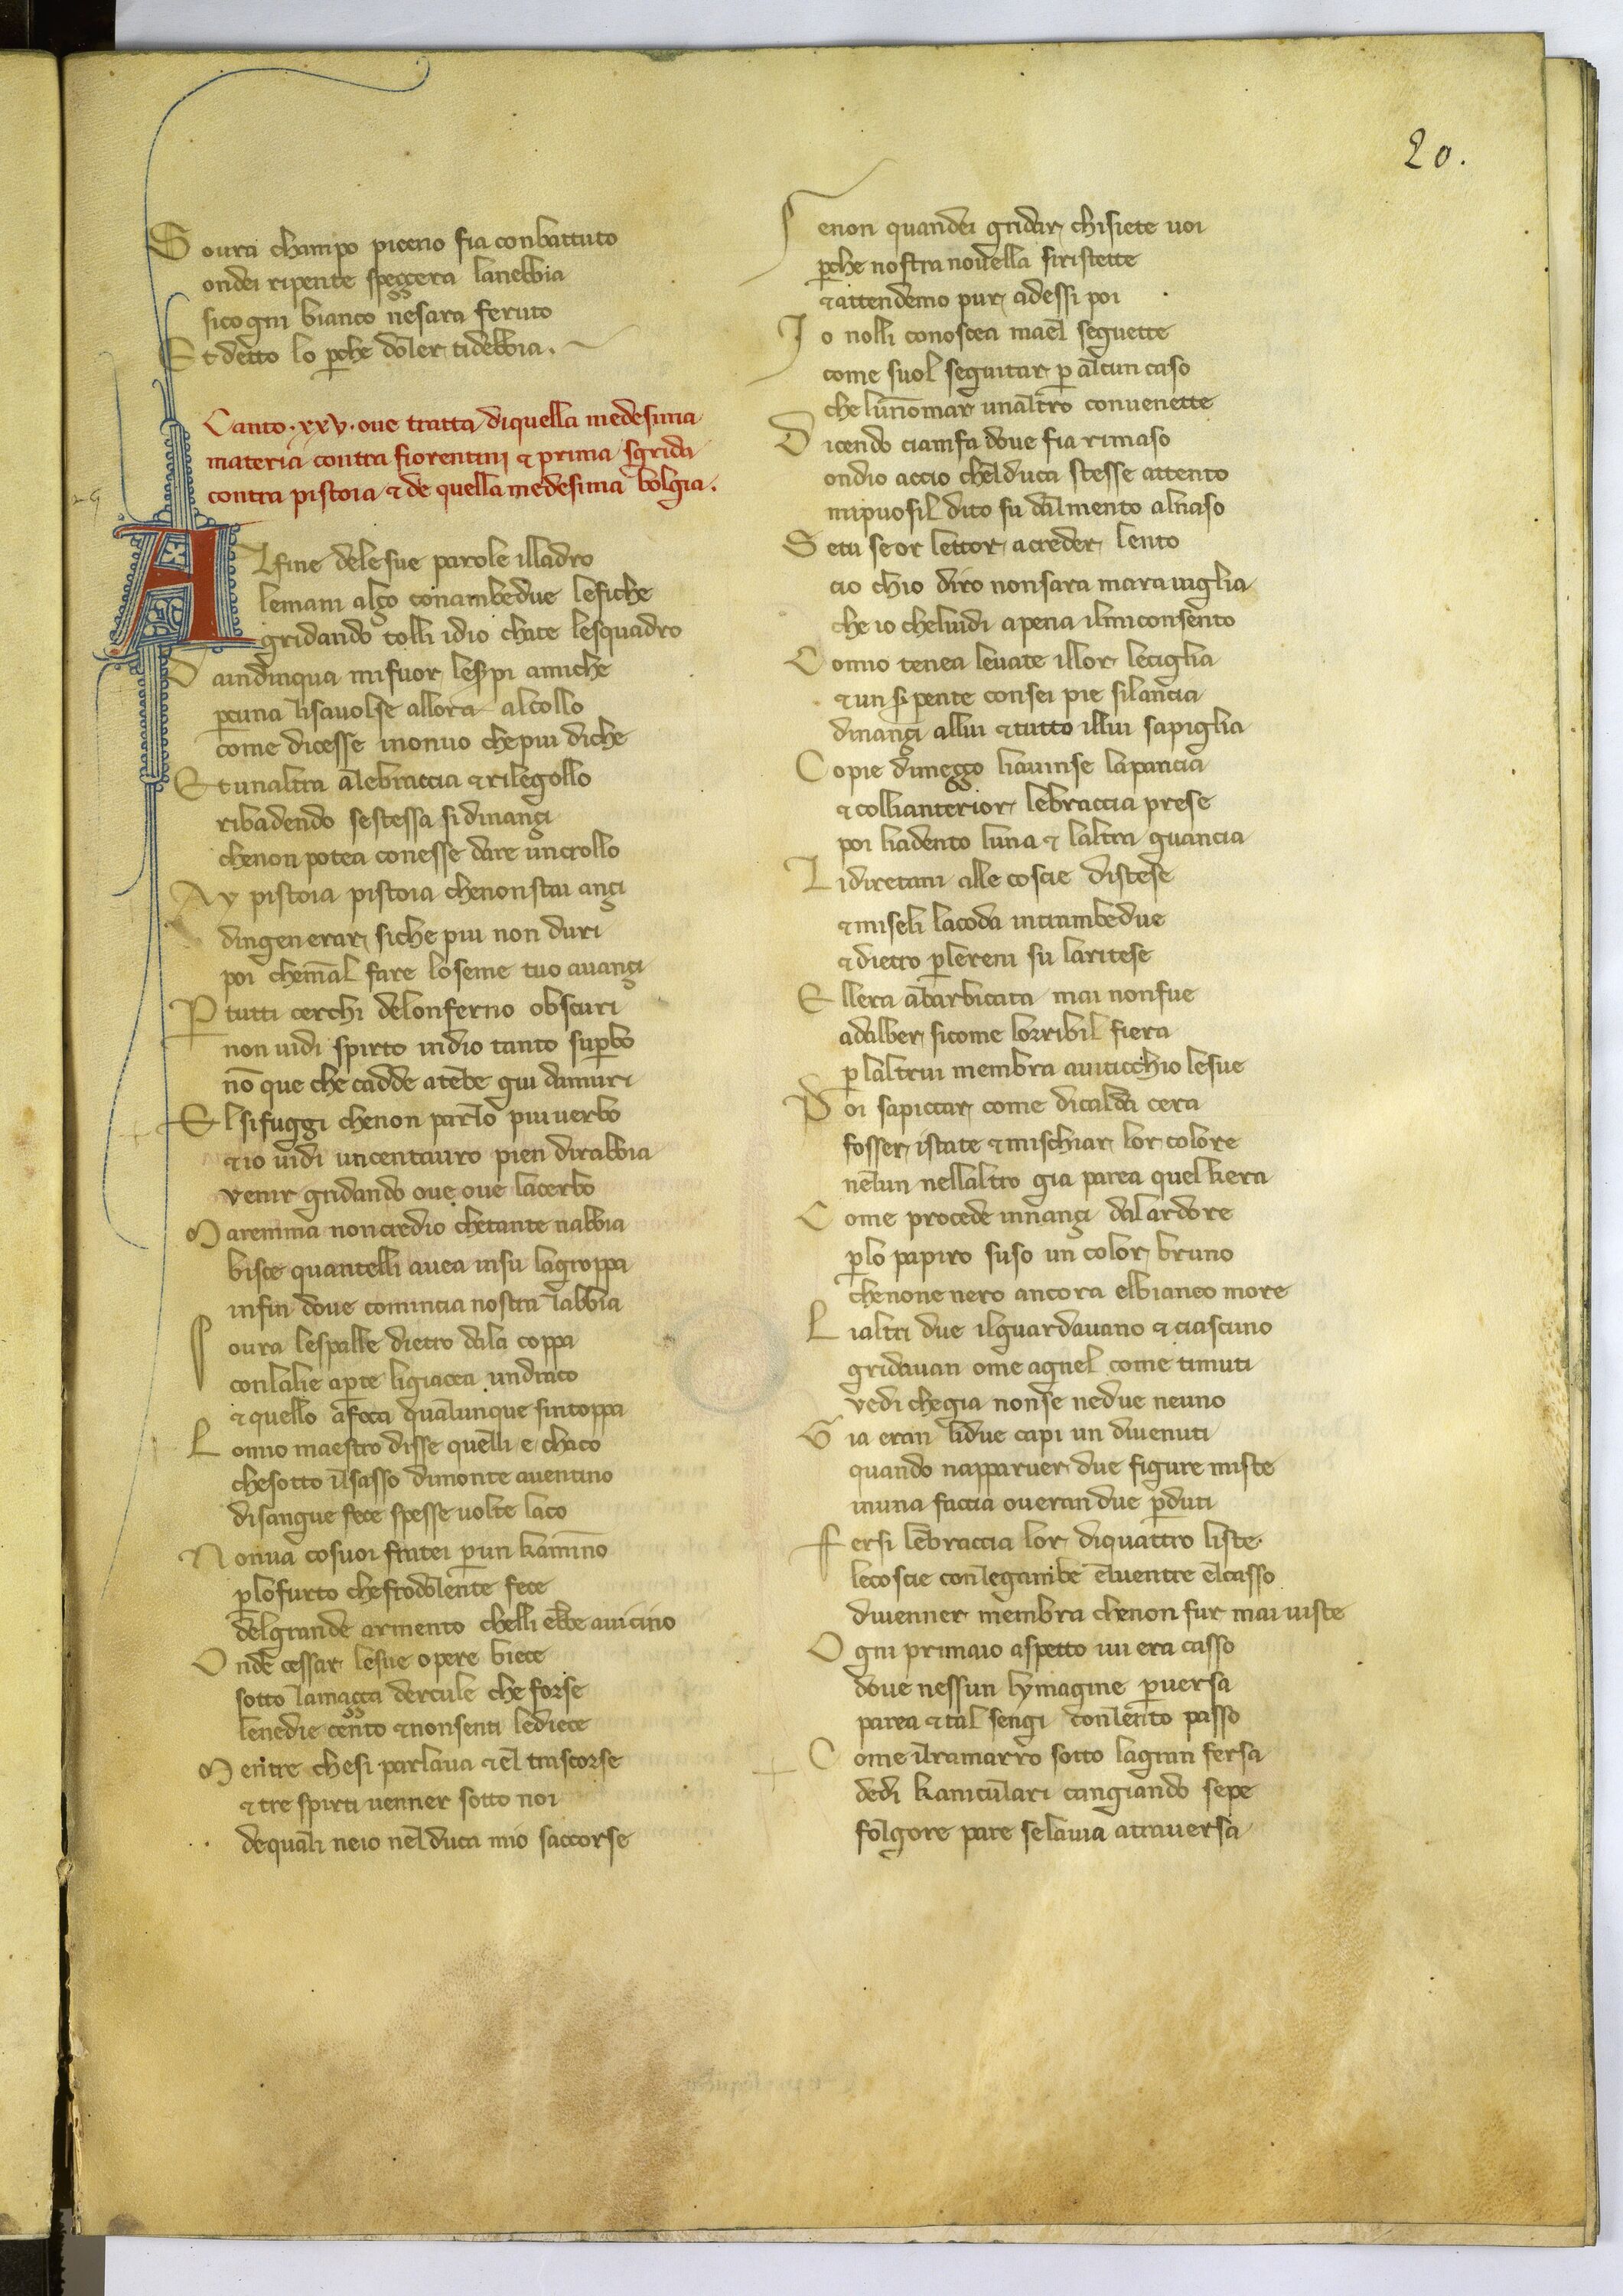 20.
Soura champo piceno fia conbattuto
ondei ripente speggera lanebbia
sicogni bianco nesara feruto
Et detto lo ꝑche doler tidebbia.
Canto .xxv. oue tratta diquella medesima
materia contra fiorentini ⁊ prima sgrida
contra pistoia ⁊ de quella medesima bolgia.
Alfine delesue parole illadro
lemani alço conambedue lefiche
gridando tolli idio chate lesquadro
Daindinqua mifuor leserpi amiche
ꝑcuna lisauolse allora alcollo
come dicesse inonuo chepiu diche
Et unaltra alebraccia ⁊ rilegollo
ribadendo sestessa sidinançi
chenon potea conesse dare uncrollo
Ay pistoia pistoia chenonstai ançi
dingenerar siche piu non duri
poi chemal fare loseme tuo auançi
Ꝑ tutti cerchi delonferno obscuri
non uidi spirto indio tanto suꝑbo
nō que che cadde atēbe giu damuri
El sifuggi chenon parlo piuuerbo
⁊ io uidi uncentauro pien dirabbia
venir gridando oue oue lacerbo
Maremma noncredio chetante nabbia
bisce quantelli auea insu lagroppa
infin doue comincia nostra labbia
Soura lespalle dietro dala coppa
conlalie aꝑte ligiacea undraco
⁊ quello afoca qualunque sintoppa
Lomio maestro disse quelli e chaco
chesotto ilsasso dimonte auentino
disangue fece spesse uolte laco
Nonua cosuoi fratei ꝑun kamīno
ꝑlofurto chefrodolente fece
delgrande armento chelli ebbe auicino
Onde cessar lesue opere biece
sotto lamaçça dercule che forse
lenedie cento ⁊ nonsenti lediece
Mentre chesi parlaua ⁊ el trascorse
⁊ tre spirti uenner sotto noi
dequali neio nelduca mio saccorse
Senon quandei gridar chisiete uoi
ꝑche nostra nouella siristette
⁊ attendemo pur adessi poi
Io nolli conoscea mael seguette
come suol seguitar ꝑ alcun caso
che lunnomar unaltro conuenette
Dicendo cianfa doue fia rimaso
ondio accio chelduca stesse attento
mipuosil dito su dalmento alnaso
Setu seor lettor acreder lento
cio chio diro nonsara marauiglia
che io cheluidi apena ilmiconsento
Comio tenea leuate illor leciglia
⁊ un sꝑpente consei pie silancia
dinançi allui ⁊ tutto illui sapiglia
Copie dimeçço liauinse lapancia
⁊ collianterior lebraccia prese
poi liadento luna ⁊ laltra guancia
Lidiretani alle coscie distese
⁊ miseli lacoda intrambedue
⁊ dietro ꝑlereni su laritese
Ellera abarbicata mai nonfue
adalber sicome lorribil fiera
ꝑ laltrui membra auiticchio lesue
Poi sapiccar come dicalda cera
fosser istate ⁊ mischiar lor colore
nelun nellaltro gia parea quelkera
Come procede innançi dalardore
ꝑlo papiro suso un color bruno
chenone nero ancora elbianco more
Lialtri due ilguardauano ⁊ ciascuno
gridauan ome agnel come timuti
vedi chegia nonse nedue neuno
Gia eran lidue capi un diuenuti
quando napparuer due figure miste
inuna faccia oueran due ꝑduti
Fersi lebraccia lor diquattro liste
lecoscie conlegambe eluentre elcasso
diuenner membra chenon fur mai uiste
Ogni primaio aspetto iui era casso
doue nessun lymagine ꝑuersa
parea ⁊ tal sengi conlento passo
Come ilramarro sotto lagran fersa
dedi kaniculari cangiando sepe
folgore pare selauia attrauersa